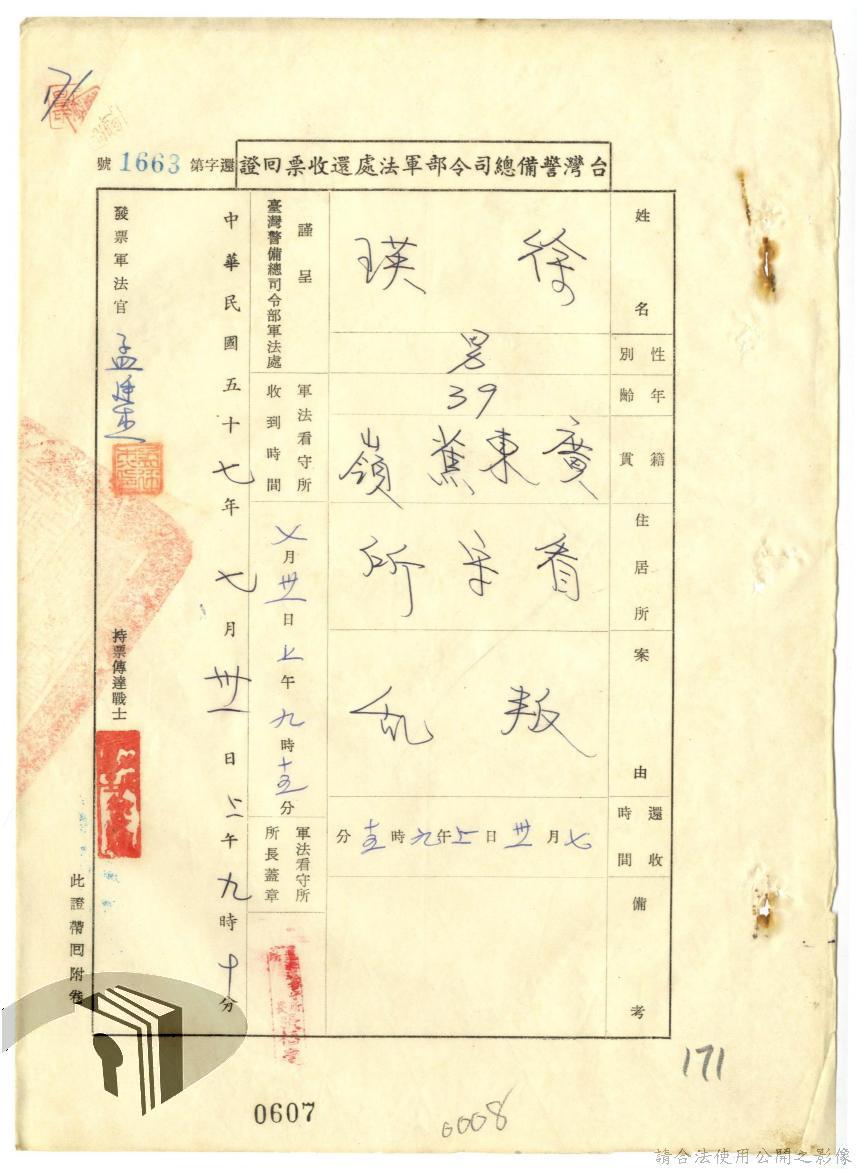 台灣警備總司令部軍法處還收票回證
還字第1663號
姓名
徐瑛
性別
男
年齡
39
籍貫
廣東蕉嶺
住居所
看守所
案由
叛乱
還收時間
七月卅一日上午九時十五分
備考
謹呈
臺灣警備總司令部軍法處
軍法看守所收到時間
七月卅一日上午九時十五分
軍法看守所所長蓋章
中華民國五十七年七月卅一日上午九時十分
發票軍法官
持票傳達戰士
此證帶回附卷
171
0607
0008
請合法使用公開之影像